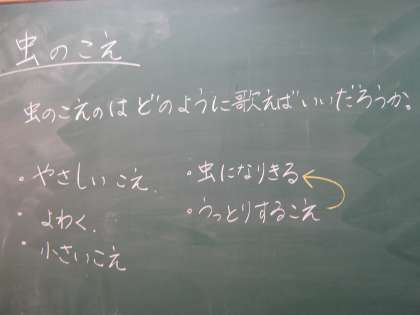 虫のこえ
虫のこえのはどのように歌えばいいだろうか。
・やさしいこえ.
・よわく.
・小さいこえ
・虫になりきる
・うっとりするこえ